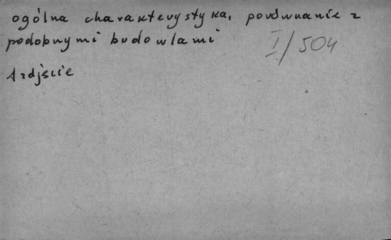 ogólna charakterystyka, porównanie z
podobnymi budowlami
I/504
1 zdjęcie